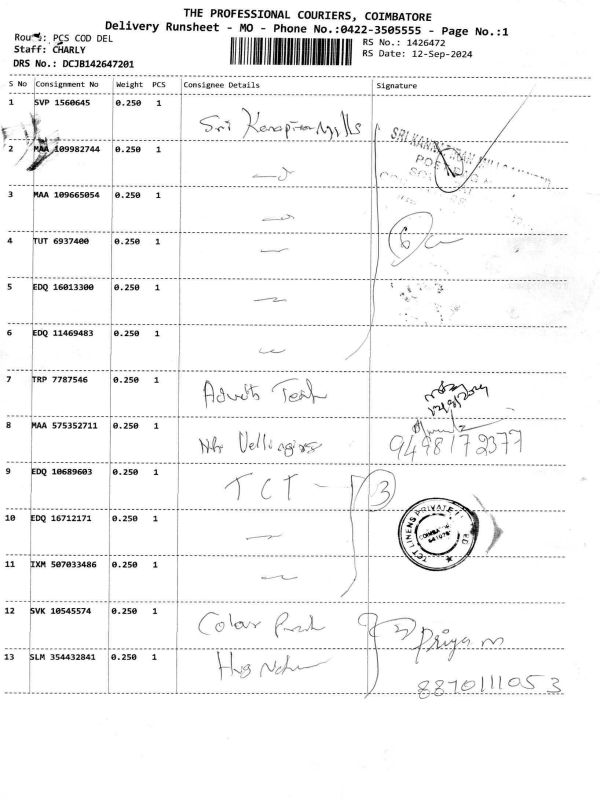 THE PROFESSIONAL COURIERS, COIMBATORE
Delivery Runsheet - MO - Phone No.:0422-3505555 - Page No.:1
Route: PCS COD DEL
Staff: CHARLY
DRS No.: DCJB142647201
RS No.: 1426472
RS Date: 12-Sep-2024
S No Consignment No Weight PCS Consignee Details Signature
1 SVP 1560645 0.250 1 Sri
2 MAA 109982744 0.250 1
3 MAA 109665054 0.250 1
4 TUT 6937400 0.250 1 6
5 EDQ 16013300 0.250 1
6 EDQ 11469483 0.250 1
7 TRP 7787546 0.250 1
8 MAA 575352711 0.250 1 9498172377
9 EDQ 10689603 0.250 1 TCT 3
TCT LINENS PRIVATE
10 EDQ 16712171 0.250 1
11 IXM 507033486 0.250 1
12 SVK 10545574 0.250 1 Colour 2 Priya m
13 SLM 354432841 0.250 1 8870111053